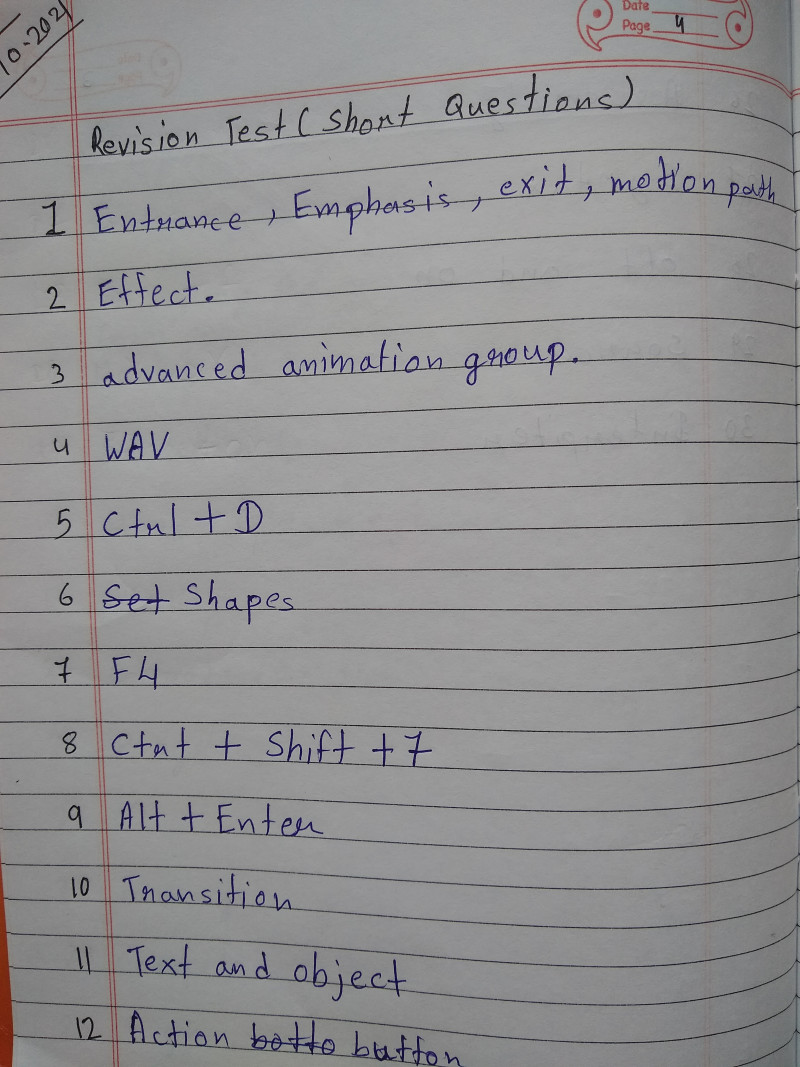 10-202
Date
Page 4
Revision Test (Short Questions)
1 Entrance, Emphasis, exit, motion path
2 Effect.
3 advanced animation group.
4 WAV
5 Ctrl + D
6 Set Shapes
7 F4
8 Ctrt + Shift + 7
9 Alt + Enter
10 Transition
11 Text and object
12 Action botto button